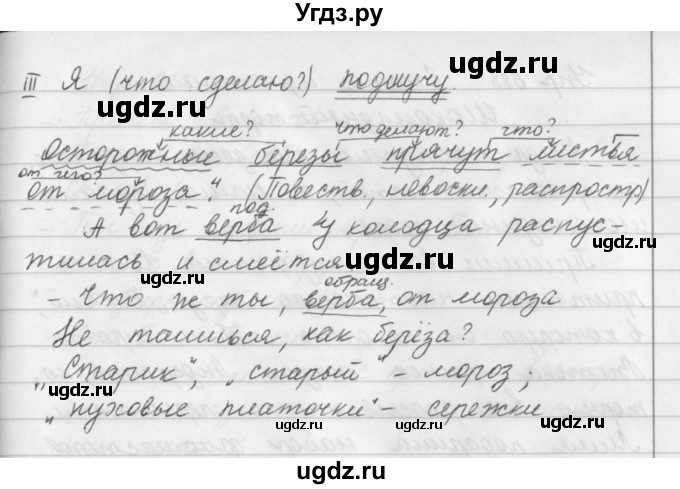 Угдз.ру
III Я (что сделаю?) подшучу.
какие? что делают? что?
Осторожные берёзы прячут листья
от чего?
от мороза". (Повеств, невоскл, распростр)
под.
А вот верба у колодца распус-
тилась и смеётся
обращ.
- Что ж ты, верба, от мороза
Не таишься, как берёза?
"Старик", "старый" - мороз;
"пуховые платочки" - сережки
ugdz.ru ugdz.ru
ugdz.ru ugdz.ru
ugdz.ru ugdz.ru
ugdz.ru ugdz.ru
ugdz.ru ugdz.ru
ugdz.ru